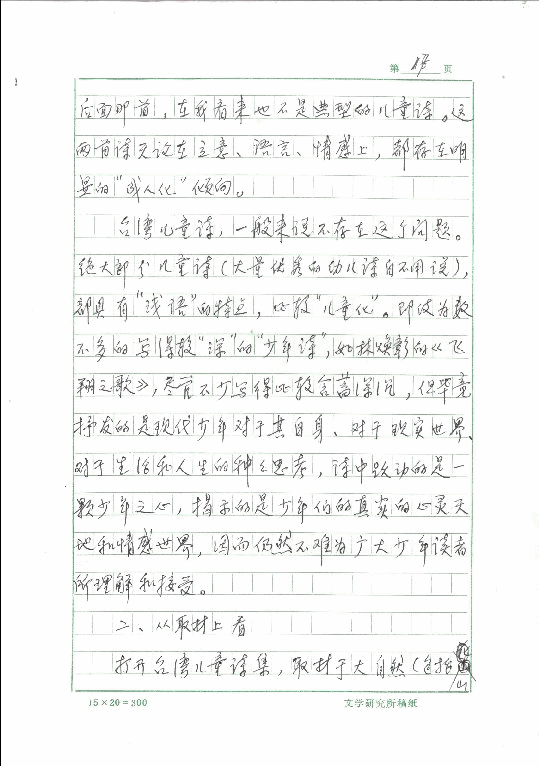 第 15 页
后面那首，在我看来也不是典型的儿童诗。这
两首诗无论在立意、语言、情感上，都存在明
显的“成人化”倾向。
台湾儿童诗，一般来说不存在这个问题。
绝大部分儿童诗（大量优秀的幼儿诗自不用说），
都具有“浅语”的特点，比较“儿童化”。即使为数
不多的写得较“深”的“少年诗”，如林焕彰的《飞
翔之歌》，尽管不少写得比较含蓄深沉，但毕竟
抒发的是现代少年对于其自身、对于现实世界、
对于生活和人生的种种思考，诗中跃动的是一
颗少年之心，揭示的是少年们的真实的心灵天
地和情感世界，因而仍然不难为广大少年读者
所理解和接受。
二、从取材上看
打开台湾儿童诗集，取材于大自然（包括
山
15×20=300
文学研究所稿纸